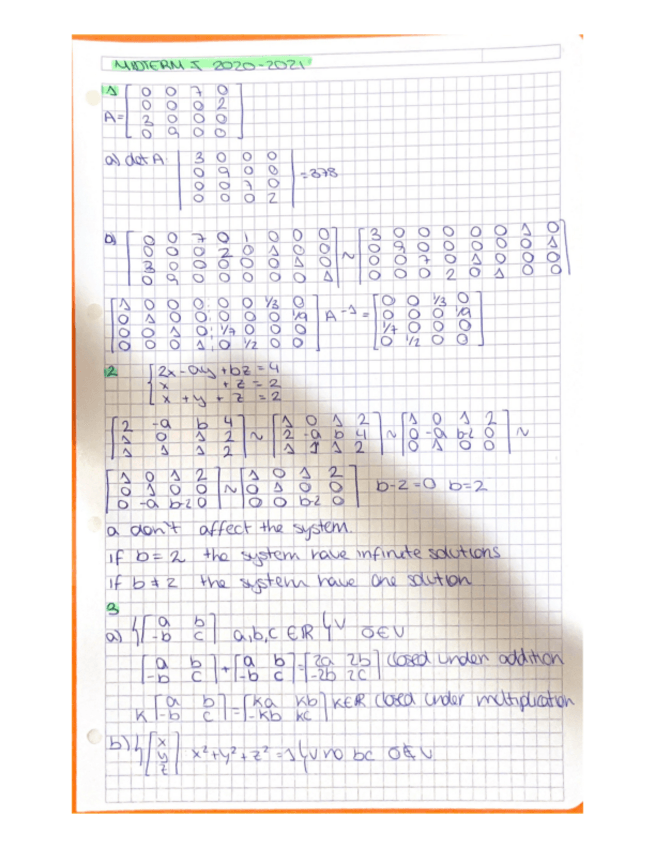 MIDTERM I 2020-2021
1
A = [0 0 7 0
0 0 0 2
3 0 0 0
0 9 0 0]
a) det A |3 0 0 0
0 9 0 0
0 0 7 0
0 0 0 2| = 378
b) [0 0 7 0 1 0 0 0
0 0 0 2 0 1 0 0
3 0 0 0 0 0 1 0
0 9 0 0 0 0 0 1] ~ [3 0 0 0 0 0 1 0
0 9 0 0 0 0 0 1
0 0 7 0 1 0 0 0
0 0 0 2 0 1 0 0]
[1 0 0 0 0 0 1/3 0
0 1 0 0 0 0 0 1/9
0 0 1 0 1/7 0 0 0
0 0 0 1 0 1/2 0 0] A⁻¹ = [0 0 1/3 0
0 0 0 1/9
1/7 0 0 0
0 1/2 0 0]
2
{2x - ay + bz = 4
x + z = 2
x + y + z = 2
[2 -a b 4
1 0 1 2
1 1 1 2] ~ [1 0 1 2
2 -a b 4
1 1 1 2] ~ [1 0 1 2
0 -a b-2 0
0 1 0 0] ~
[1 0 1 2
0 1 0 0
0 -a b-2 0] ~ [1 0 1 2
0 1 0 0
0 0 b-2 0] b-2=0 b=2
a don't affect the system.
if b = 2 the system have infinite solutions
if b ≠ 2 the system have one solution
3
a) {[a b
-b c] a,b,c ∈ ℝ} V 0 ∈ V
[a b
-b c] + [a b
-b c] = [2a 2b
-2b 2c] closed under addition
k [a b
-b c] = [ka kb
-kb kc] k∈ℝ closed under multiplication
b) {[x
y
z] x² + y² + z² = 1} V no bc 0 ∉ V